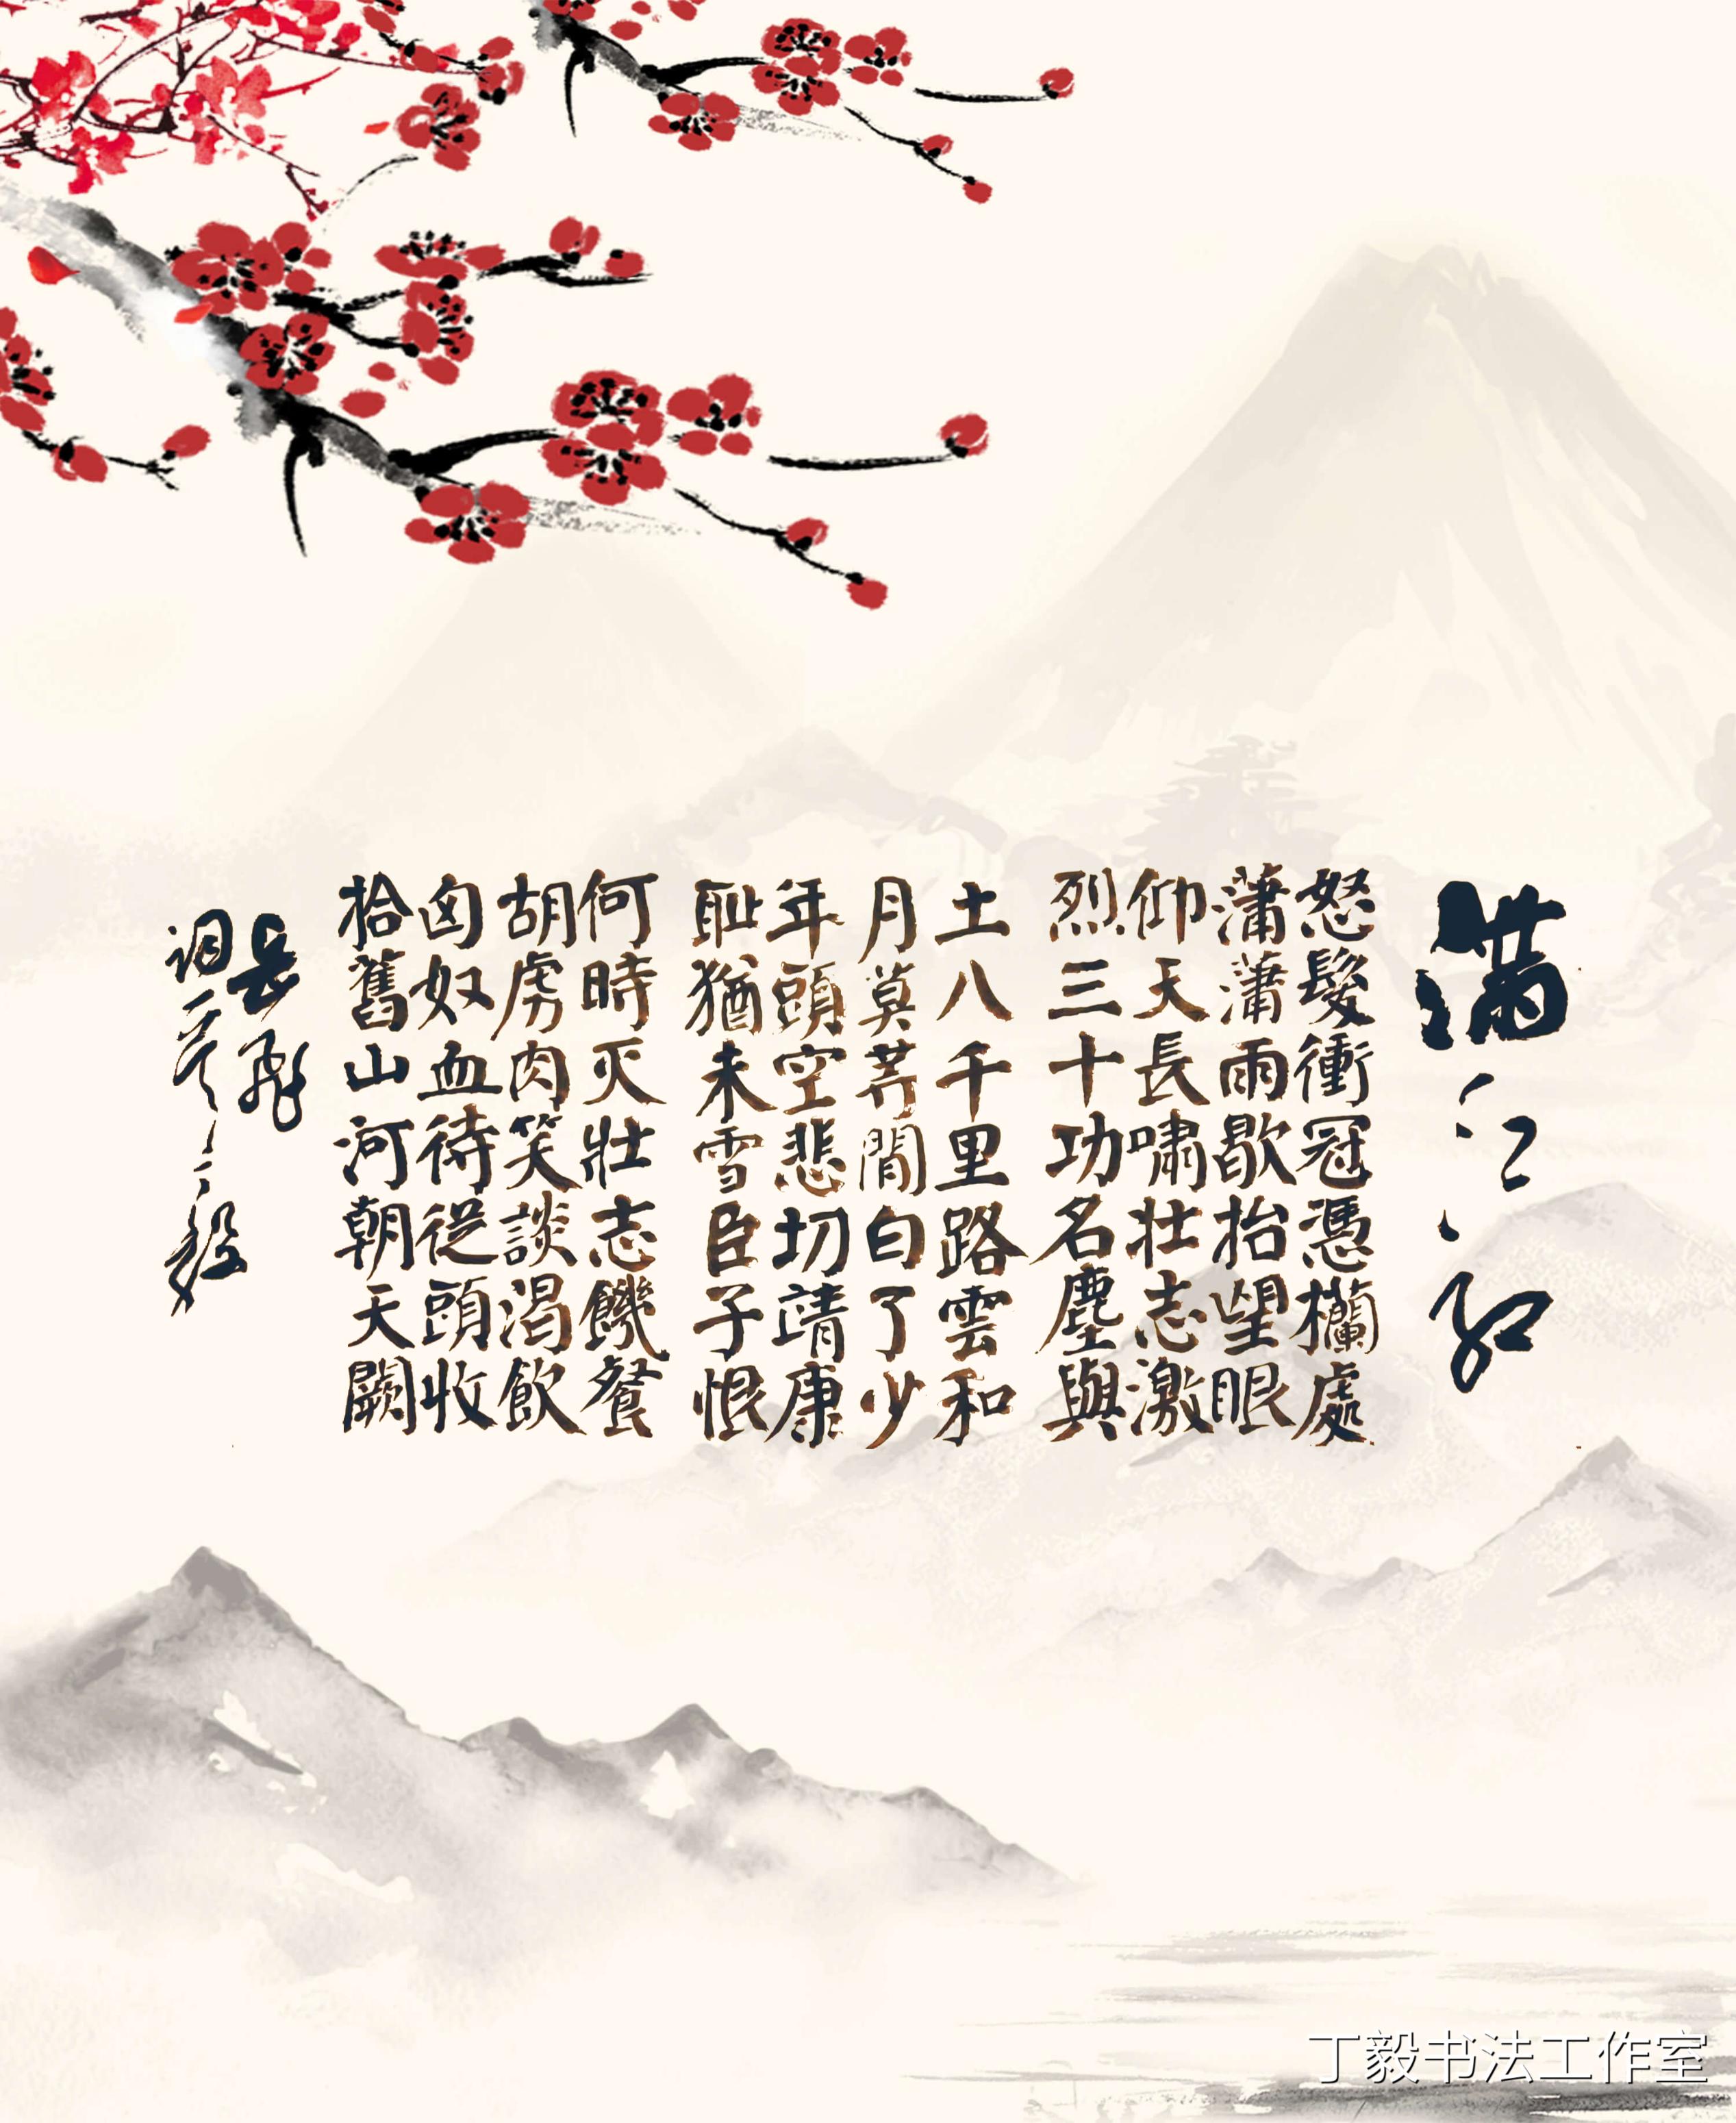 满江红
怒髮衝冠憑欄處
瀟瀟雨歇抬望眼
仰天長嘯壯志激
烈三十功名塵與
土八千里路雲和
月莫等閒白了少
年頭空悲切靖康
耻猶未雪臣子恨
何時灭壯志饑餐
胡虜肉笑談渴飲
匈奴血待從頭收
拾舊山河朝天闕
岳飛
词一首丁毅
丁毅书法工作室